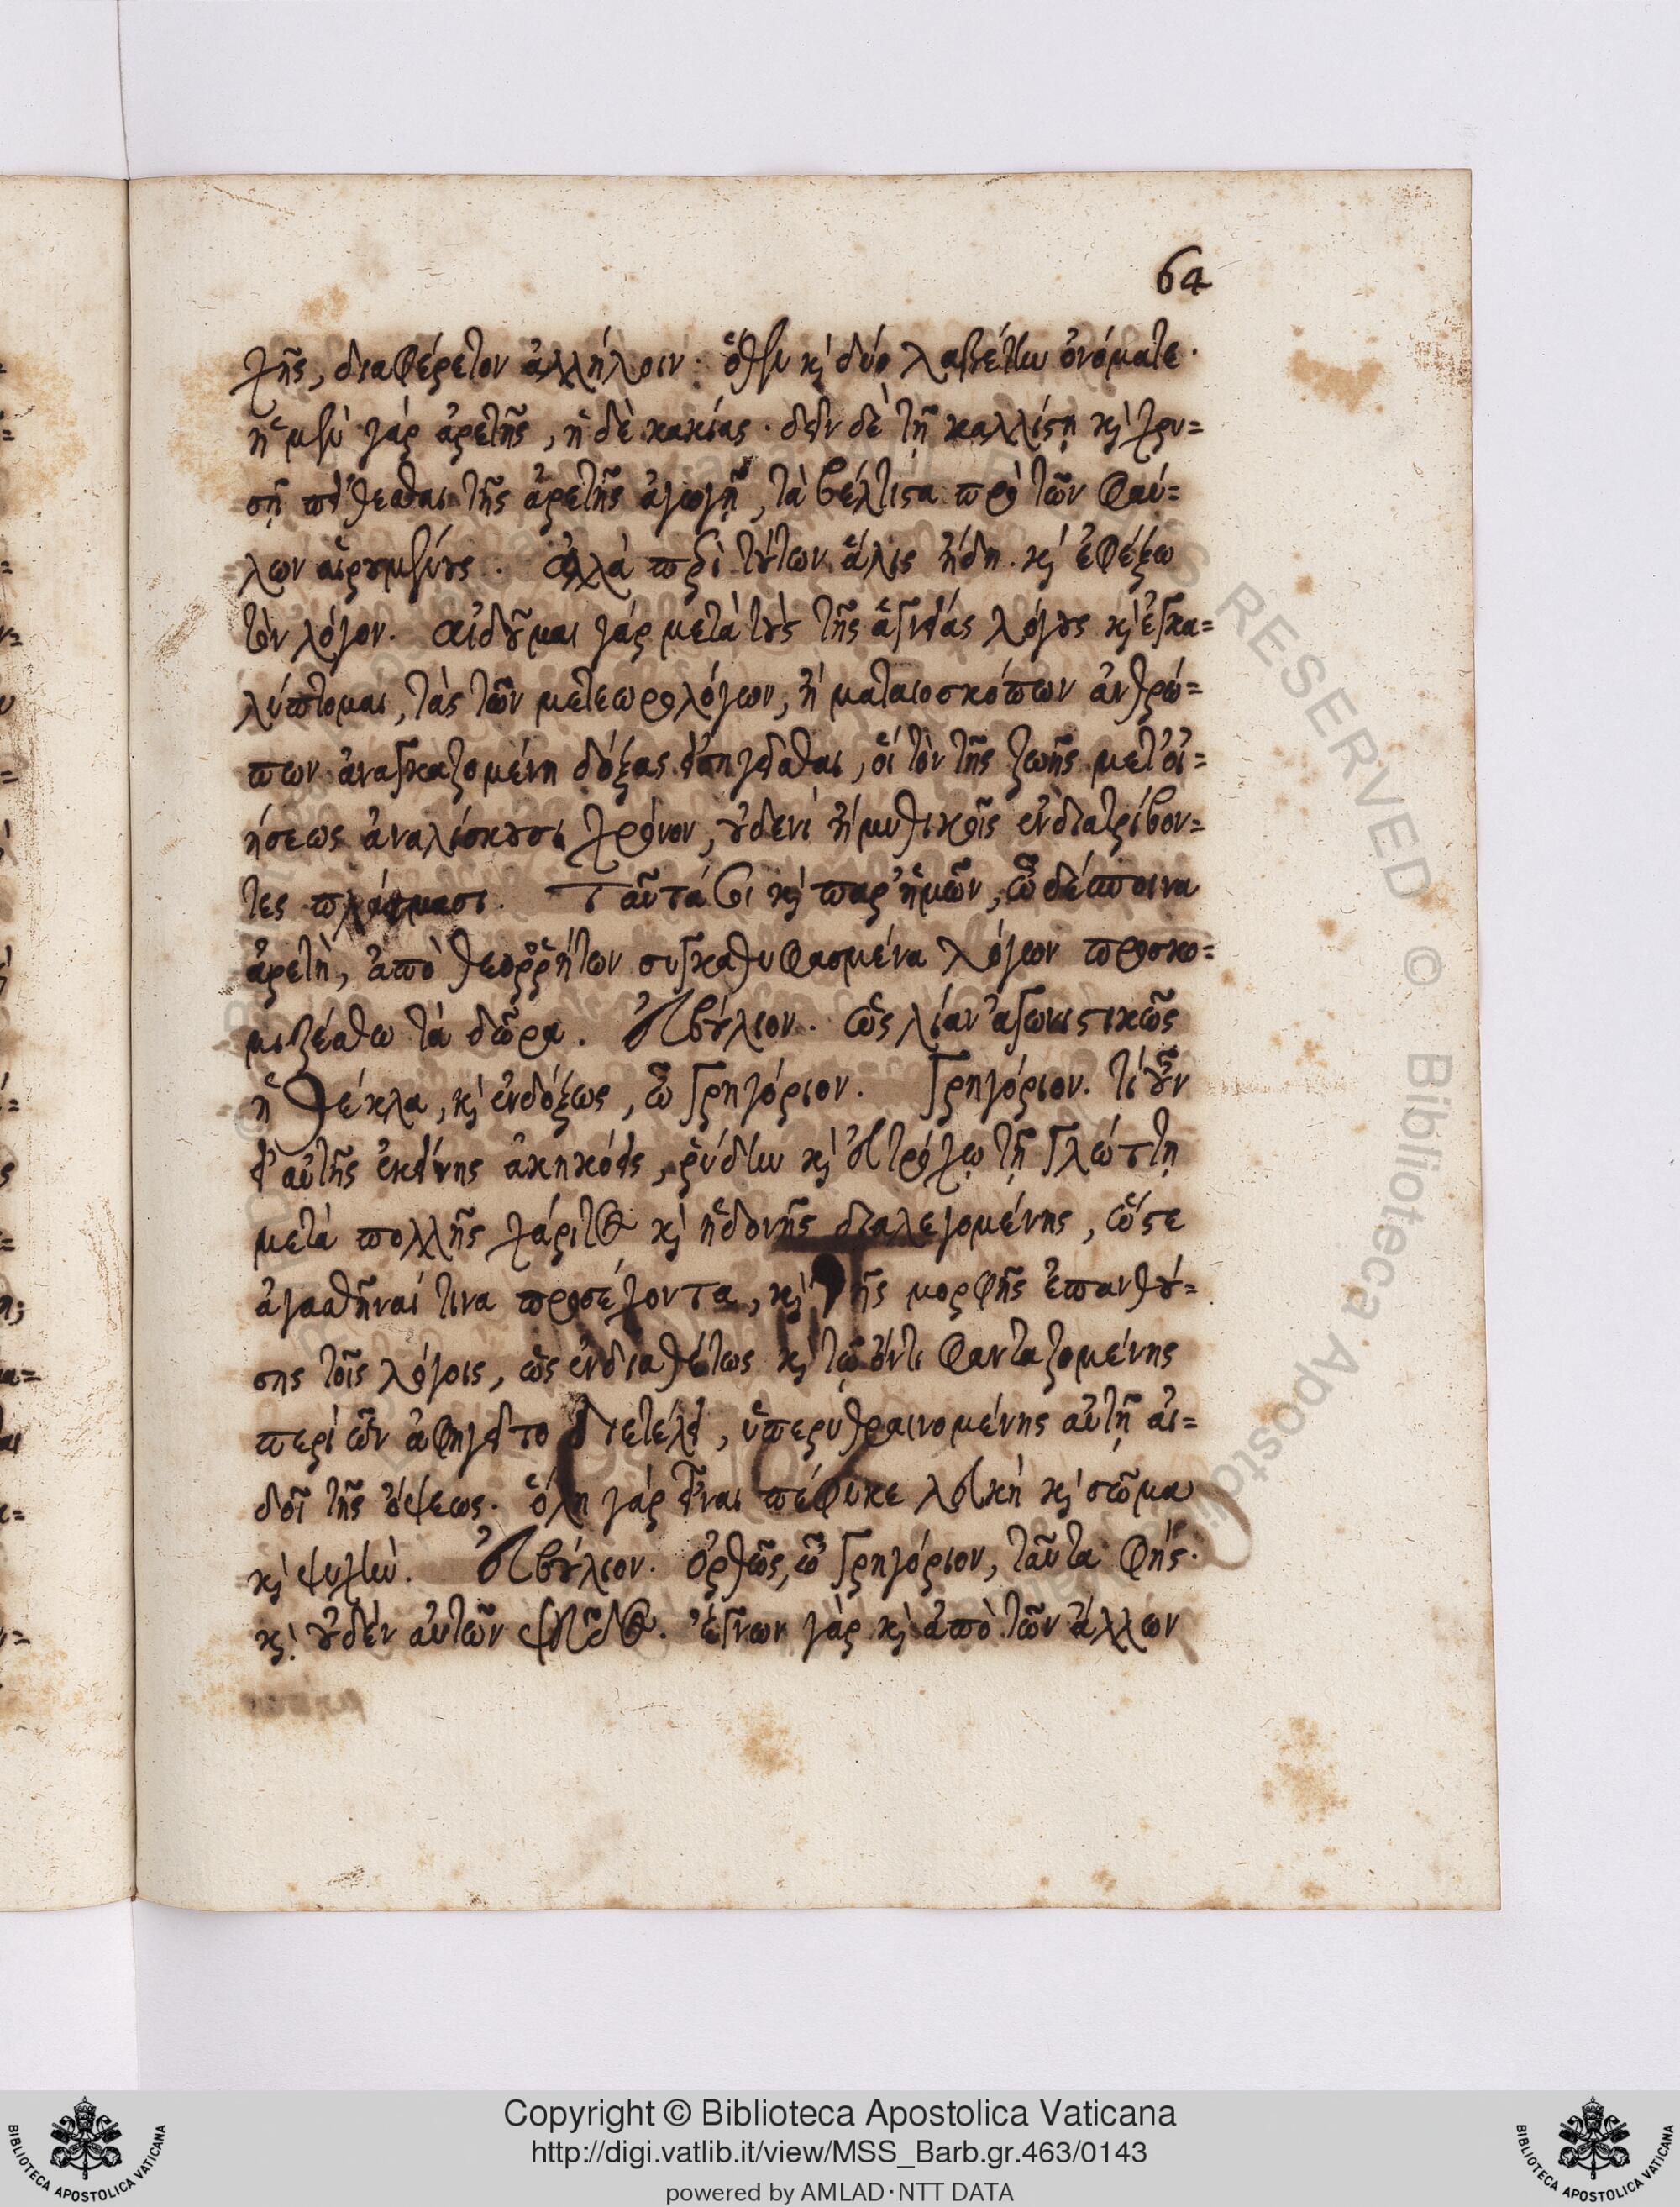 64
χῆς, διαφέρετον ἀλλήλοιν· ὅθεν κ̀ δύο λαβέτην ὀνόματε·
ἡ μὲν γάρ ἀρετῆς, ἡ δὲ κακίας. δεῖν δὲ τῇ καλλίστῃ κ̀ χρυ=
σῇ πείθεσθαι τῆς ἀρετῆς ἀγωγῇ, τὰ βέλτιστα πρὸ τῶν φαύ=
λων αἱρουμένους. Ἀλλὰ περὶ τούτων ἅλις ἤδη. κ̀ ἐφέξω
τὸν λόγον. αἰδοῦμαι γάρ μετὰ τοὺς τῆς ἁγνείας λόγους κ̀ ἐγκα=
λύπτομαι, τὰς τῶν μετεωρολόγων, ἢ ματαιοσκόπων ἀνθρώ=
πων ἀναγκαζομένη δόξας εἰσηγεῖσθαι, οἵ τὸν τῆς ζωῆς μετ' οἰ=
ήσεως ἀναλίσκουσι χρόνον, οὐδενὶ ἢ μυθικοῖς ἐνδιατρίβον=
τες πλάσμασι. Ταῦτά σοι κ̀ παρ' ἡμῶν, ὦ δέσποινα
ἀρετὴ, ἀπὸ θεορῥήτων συγκαθυφασμένα λόγων προσκο=
μιζέσθω τὰ δῶρα. Εὐβούλιον. ὡς λίαν ἀγωνιστικῶς
ἡ Θέκλα, κ̀ ἐνδόξως, ὦ Γρηγόριον. Γρηγόριον. τί οὖν
εἰ αὐτῆς ἐκείνης ἀκηκόεις, ῥύδην κ̀ εὐτρόχῳ τῇ γλώττῃ
μετὰ πολλῆς χάριτος κ̀ ἡδονῆς διαλεγομένης, ὥστε
ἀγασθῆναί τινα προσέχοντα, κ̀ τῆς μορφῆς ἐπανθού=
σης τοῖς λόγοις, ὡς ἐνδιαθέτως κ̀ τῷ ὄντι φανταζομένης
περὶ ὧν ἀφηγεῖτο διετέλει, ὑπερυθραινομένης αὐτῇ αἰ=
δοῖ τῆς ὄψεως. ὅλη γάρ εἶναι πέφυκε λευκὴ κ̀ σῶμα
κ̀ ψυχήν. Εὐβούλιον. ὀρθῶς, ὦ Γρηγόριον, ταῦτα φής·
κ̀ οὐδὲν αὐτῶν ψεῦδος. ἔγνων γὰρ κ̀ ἀπὸ τῶν ἄλλων
Copyright © Biblioteca Apostolica Vaticana
http://digi.vatlib.it/view/MSS_Barb.gr.463/0143
powered by AMLAD·NTT DATA